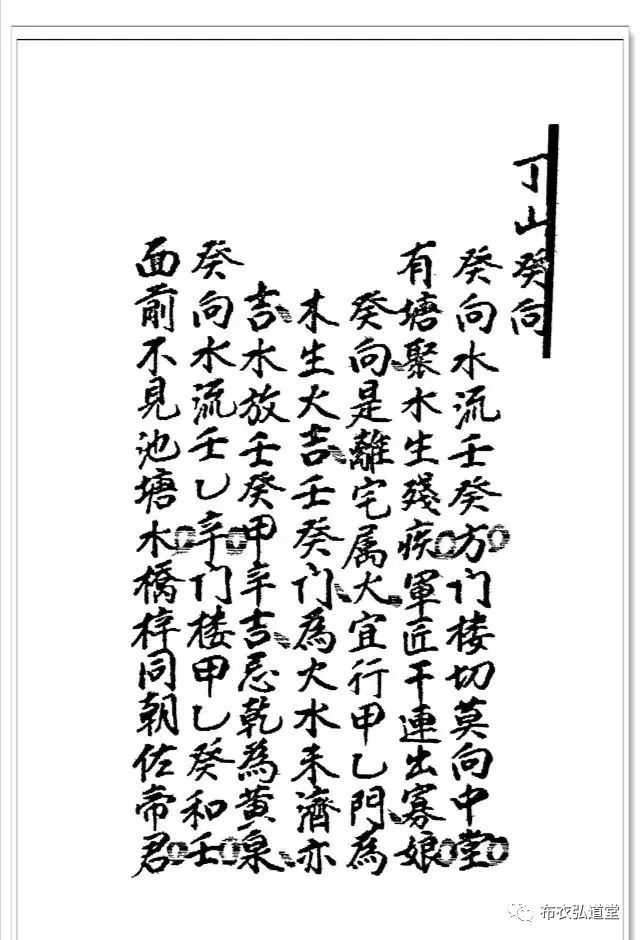 丁山癸向
癸向水流壬癸方门楼切莫向中堂
有塘聚水生殘疾軍匠干連出寡娘
癸向是離宅属火宜行甲乙門為
木生火吉壬癸门為火水未濟亦
吉水放壬癸甲辛吉忌乾為黄泉
癸向水流壬乙辛门楼甲乙癸和壬
面前不見池塘水橋梓同朝佐帝君
布衣弘道堂